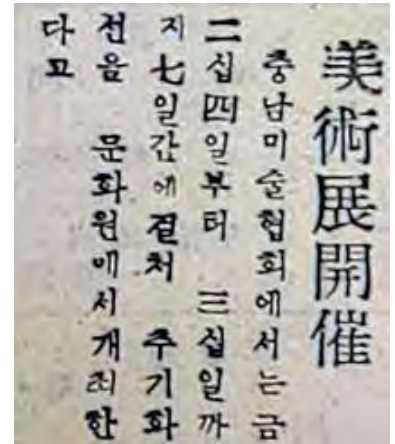 美術展開催
충남미술협회에서는금
二십四일부터 三십일까
지 七일간에 결처 추기화
전을 문화원에서 개최한
다고